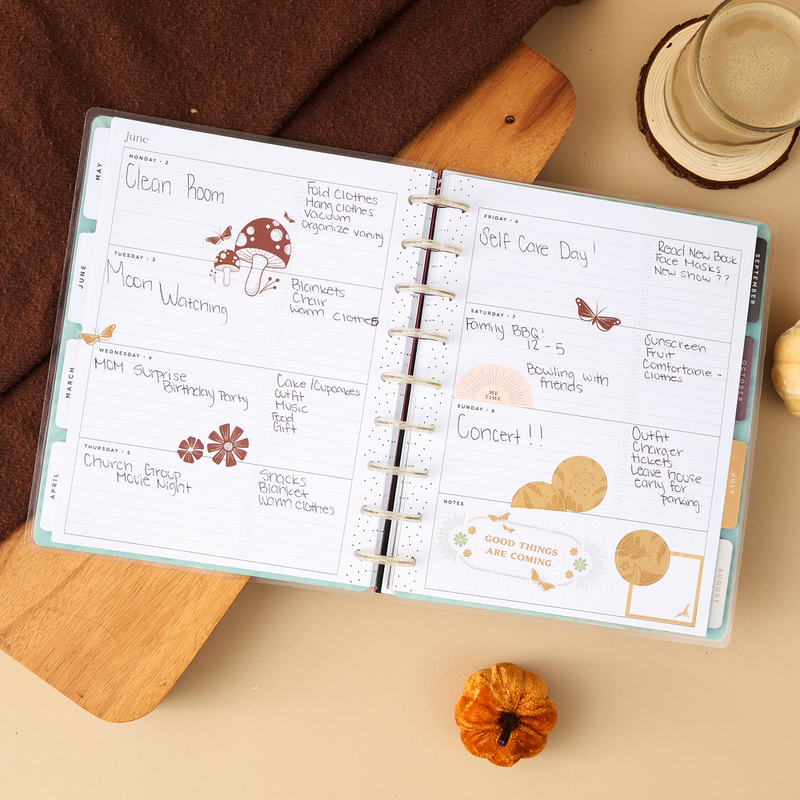 june
MONDAY • 2
Clean Room
Fold Clothes
Hang clothes
Vacuum
organize vanity
TUESDAY • 3
Moon Watching
Blankets
Chair
Warm clothes
WEDNESDAY • 4
MOM Surprise
Birthday Party
Cake/Cupcakes
Outfit
Music
Food
Gift
THURSDAY • 5
Church Group
Movie Night
Snacks
Blanket
Warm Clothes
FRIDAY • 6
Self Care Day!
Read New Book
Face Masks
New Show??
SATURDAY • 7
Family BBQ!
12-5
Bowling with
friends
Sunscreen
Fruit
Comfortable -
Clothes
ME
TIME
SUNDAY • 8
Concert!!
Outfit
Charger
tickets
Leave house
early for
parking.
NOTES
GOOD THINGS
ARE COMING
MAY
JUNE
MARCH
APRIL
SEPTEMBER
OCTOBER
JULY
AUGUST